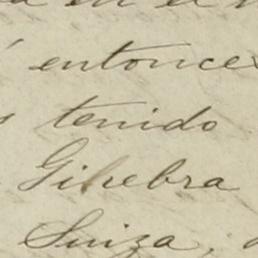 en el
entonces
tenido
Ginebra
Suiza,